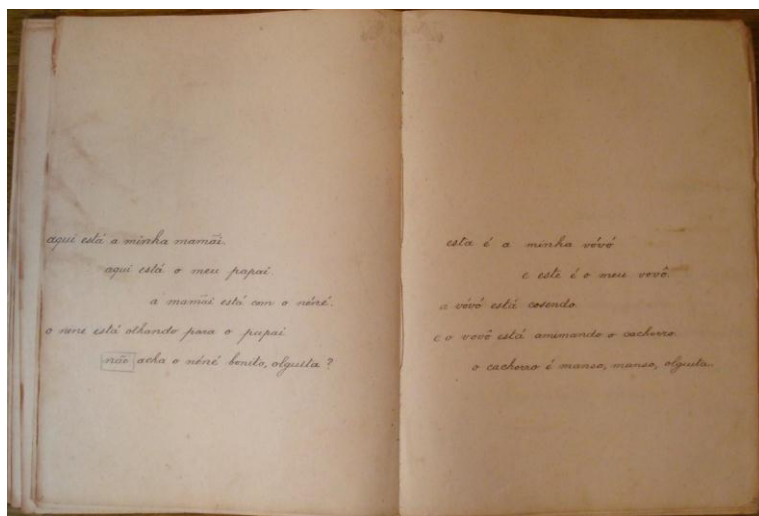 aqui está a minha mamãi.
aqui está o meu papai.
a mamãi está com o nénê.
o nene está olhando para o papai.
não acha o nénê bonito, olguita ?
esta é a minha vóvó
e este é o meu vovô.
a vóvó está cosendo.
e o vovô está amimando o cachorro.
o cachorro é manso, manso, olguita..